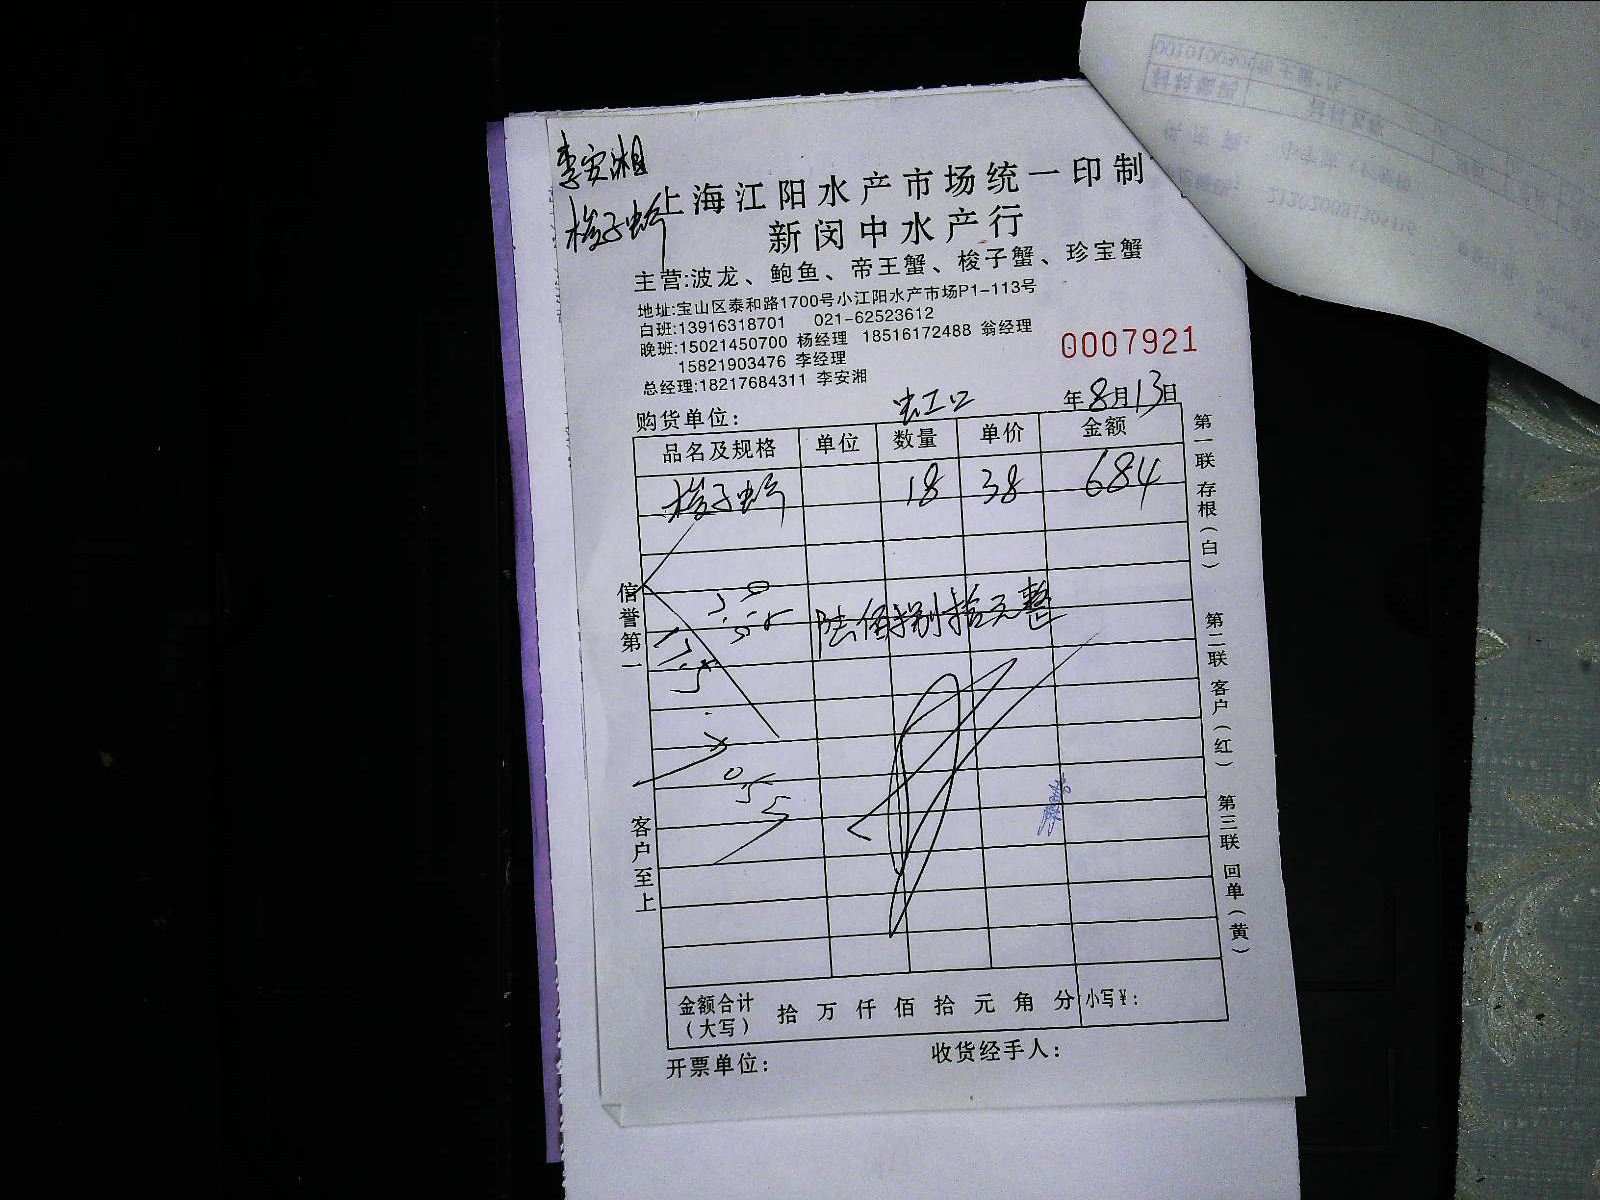 李安湘
梭子蟹
上海江阳水产市场统一印制
新闵中水产行
主营:波龙、鲍鱼、帝王蟹、梭子蟹、珍宝蟹
地址:宝山区泰和路1700号小江阳水产市场P1-113号
白班:13916318701 021-62523612
晚班:15021450700 杨经理 18516172488 翁经理
15821903476 李经理
总经理:18217684311 李安湘
0007921
购货单位: 虹口 年8月13日
品名及规格 单位 数量 单价 金额
梭子蟹 18 38 684
陆佰捌拾元整
信誉第一
客户至上
第一联 存根(白)
第二联 客户(红)
第三联 回单(黄)
金额合计(大写) 拾 万 仟 佰 拾 元 角 分 小写¥:
开票单位: 收货经手人: